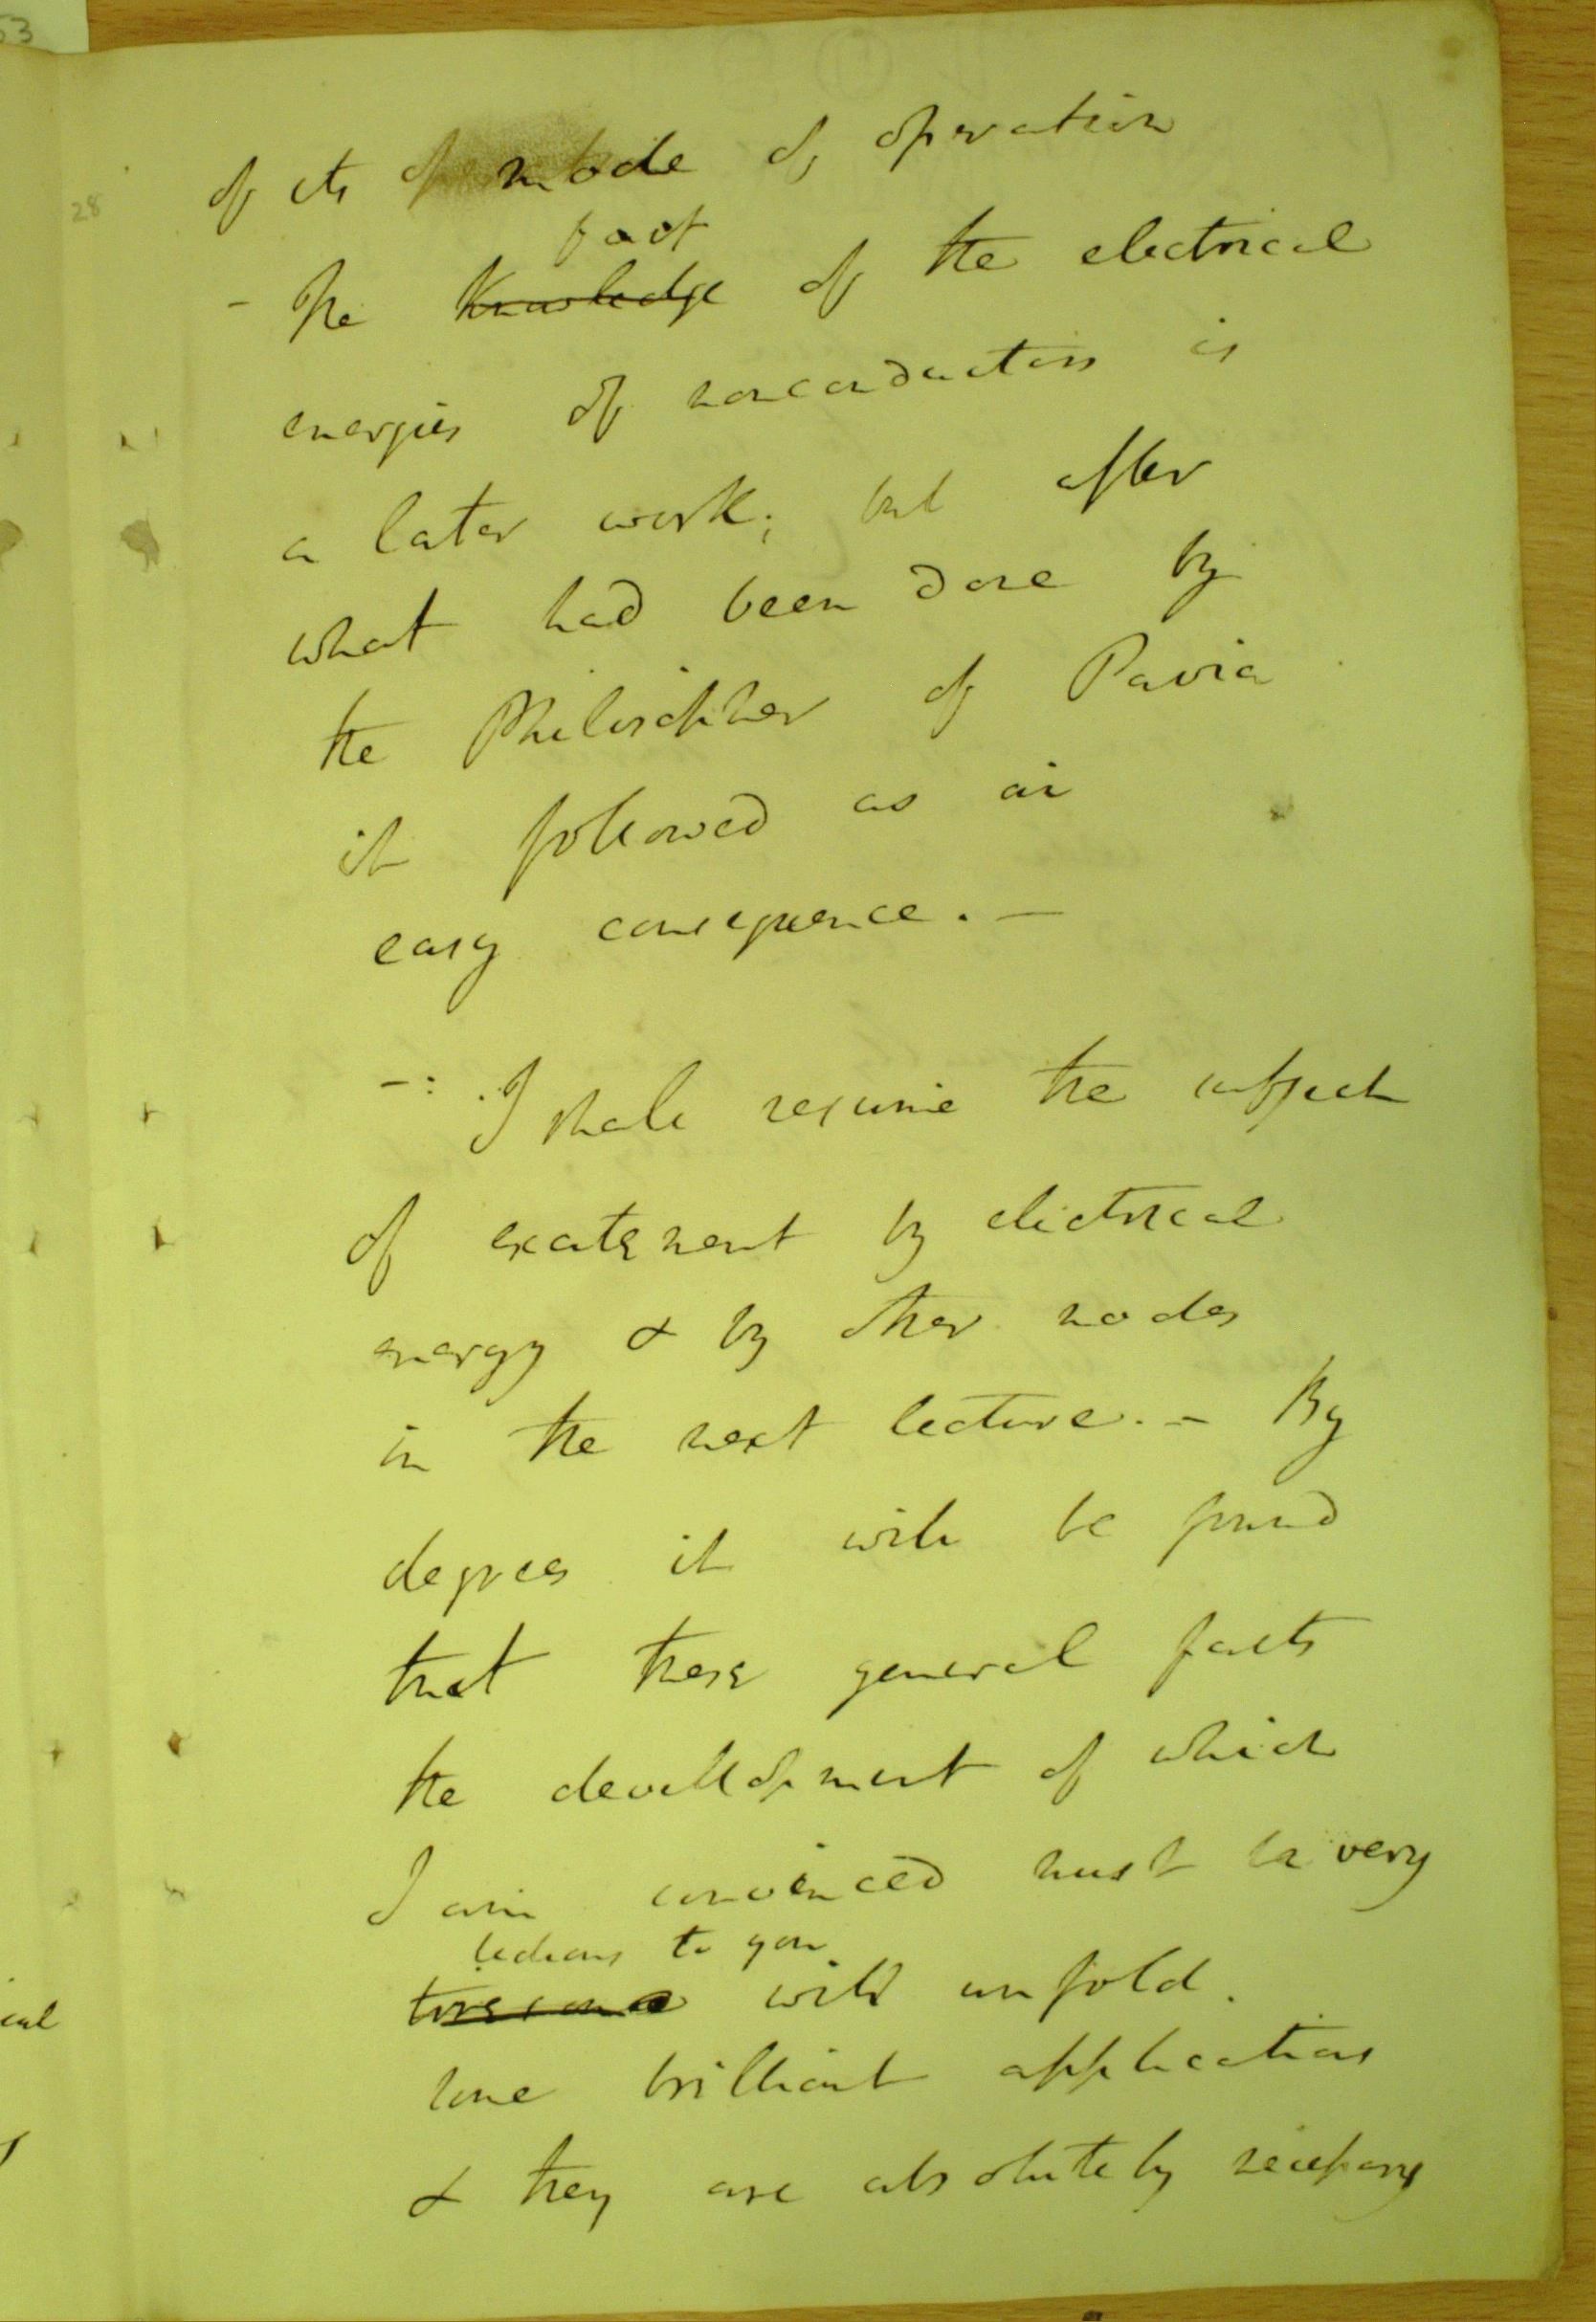 53
28
of its mode of operation
fact
- The Knowledge of the electrical
energies of nonconductors is
a later work; but after
what had been done by
the Philosopher of Pavia
it followed as an
easy consequence. —
-: I shall resume the subject
of excitement by electrical
energy & by other modes
in the next lecture. - By
degrees it will be found
that these general facts
the development of which
I am convinced must be very
tedious to you
will unfold.
some brilliant applications
& they are absolutely necessary